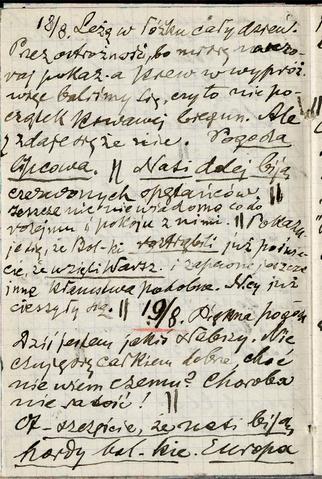 18/8. Leżę w łóżku cały dzień.
Przez ostrożność, bo miarę wczo-
raj pokaz. a krew w wypróż.
więc baliśmy się, czy to nie po-
czątek krwawej biegun. Ale
zdaje się że nie. Pogoda
lipcowa. || Nasi dalej biją
czerwonych opętańców, ||
jeszcze nic nie wiadomo co do
rozejmu i pokoju z nimi. || Pokazu
je się, że Bol-ki roztrąbili już po świe-
cie, że wzięli Warsz. i zapewne jeszcze
inne kłamstwa podobne. Aby już
cieszyły się. || 19/8. Piękna pogoda
Dziś jestem jakiś słabszy. Nie
czuję się całkiem dobrze choć
nie wiem czemu? Choroba
nie radość! ||
O! szczęście, że nasi biją
hordy bol-kie. Europa